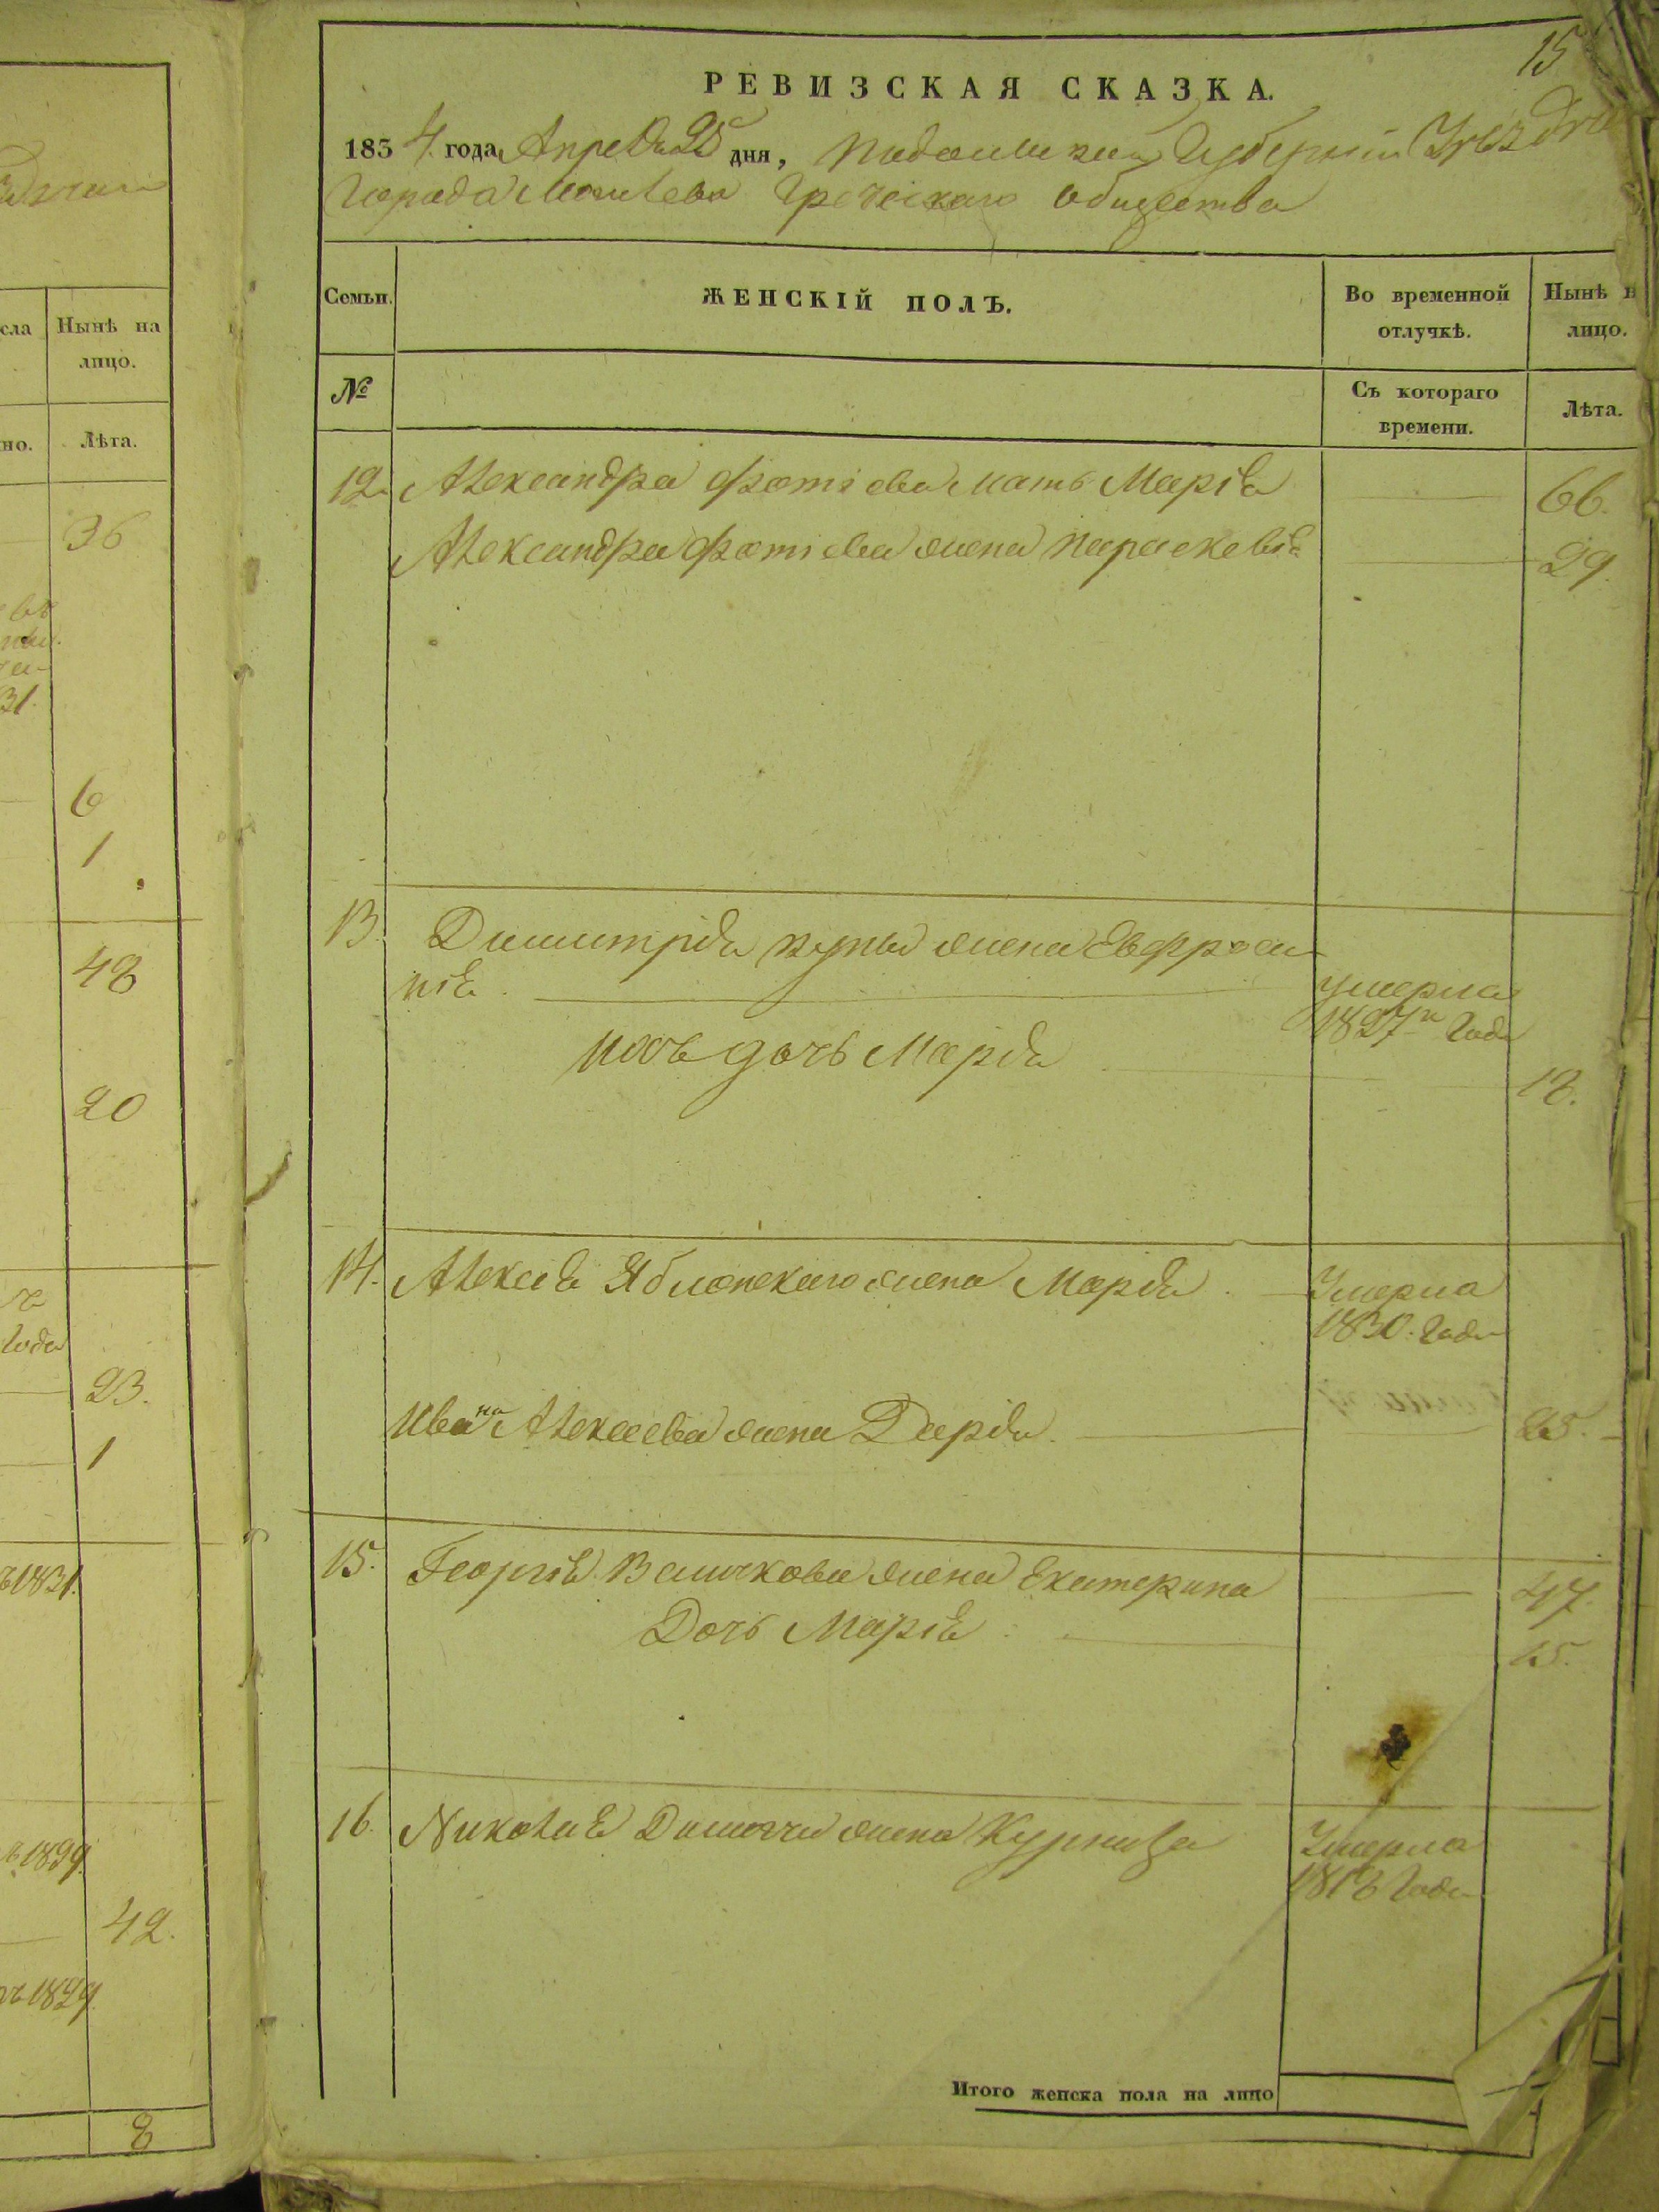 15
РЕВИЗСКАЯ СКАЗКА.
1834 года Апреля 25 дня, Подольской Губернии Уѣздна
Города Могилева Греческаго общества
Семьи.
ЖЕНСКІЙ ПОЛЪ.
Во временной отлучкѣ.
Нынѣ н
лицо.
№
Съ котораго времени.
Лѣта.
12. Александра Фотіева мать Марія 66.
Александра Фотіева жена Параскевія 29.
13. Димитрія жена Евфроси
нія умерла
1827 года
дочь Марія 18.
14. Алексѣя Яблонскаго жена Марія Умерла
1830. года
Ивана Алексеева жена Дарія 25.
15. Георгія жена Екатерина 47.
Дочь Марія 15.
16. Николая жена Умерла
1818 года
Итого женска пола на лицо
сла
Нынѣ на
лицо.
но.
Лѣта.
36
31.
6
1
48
20
года
23.
1
1831.
1829.
42.
1829.
8